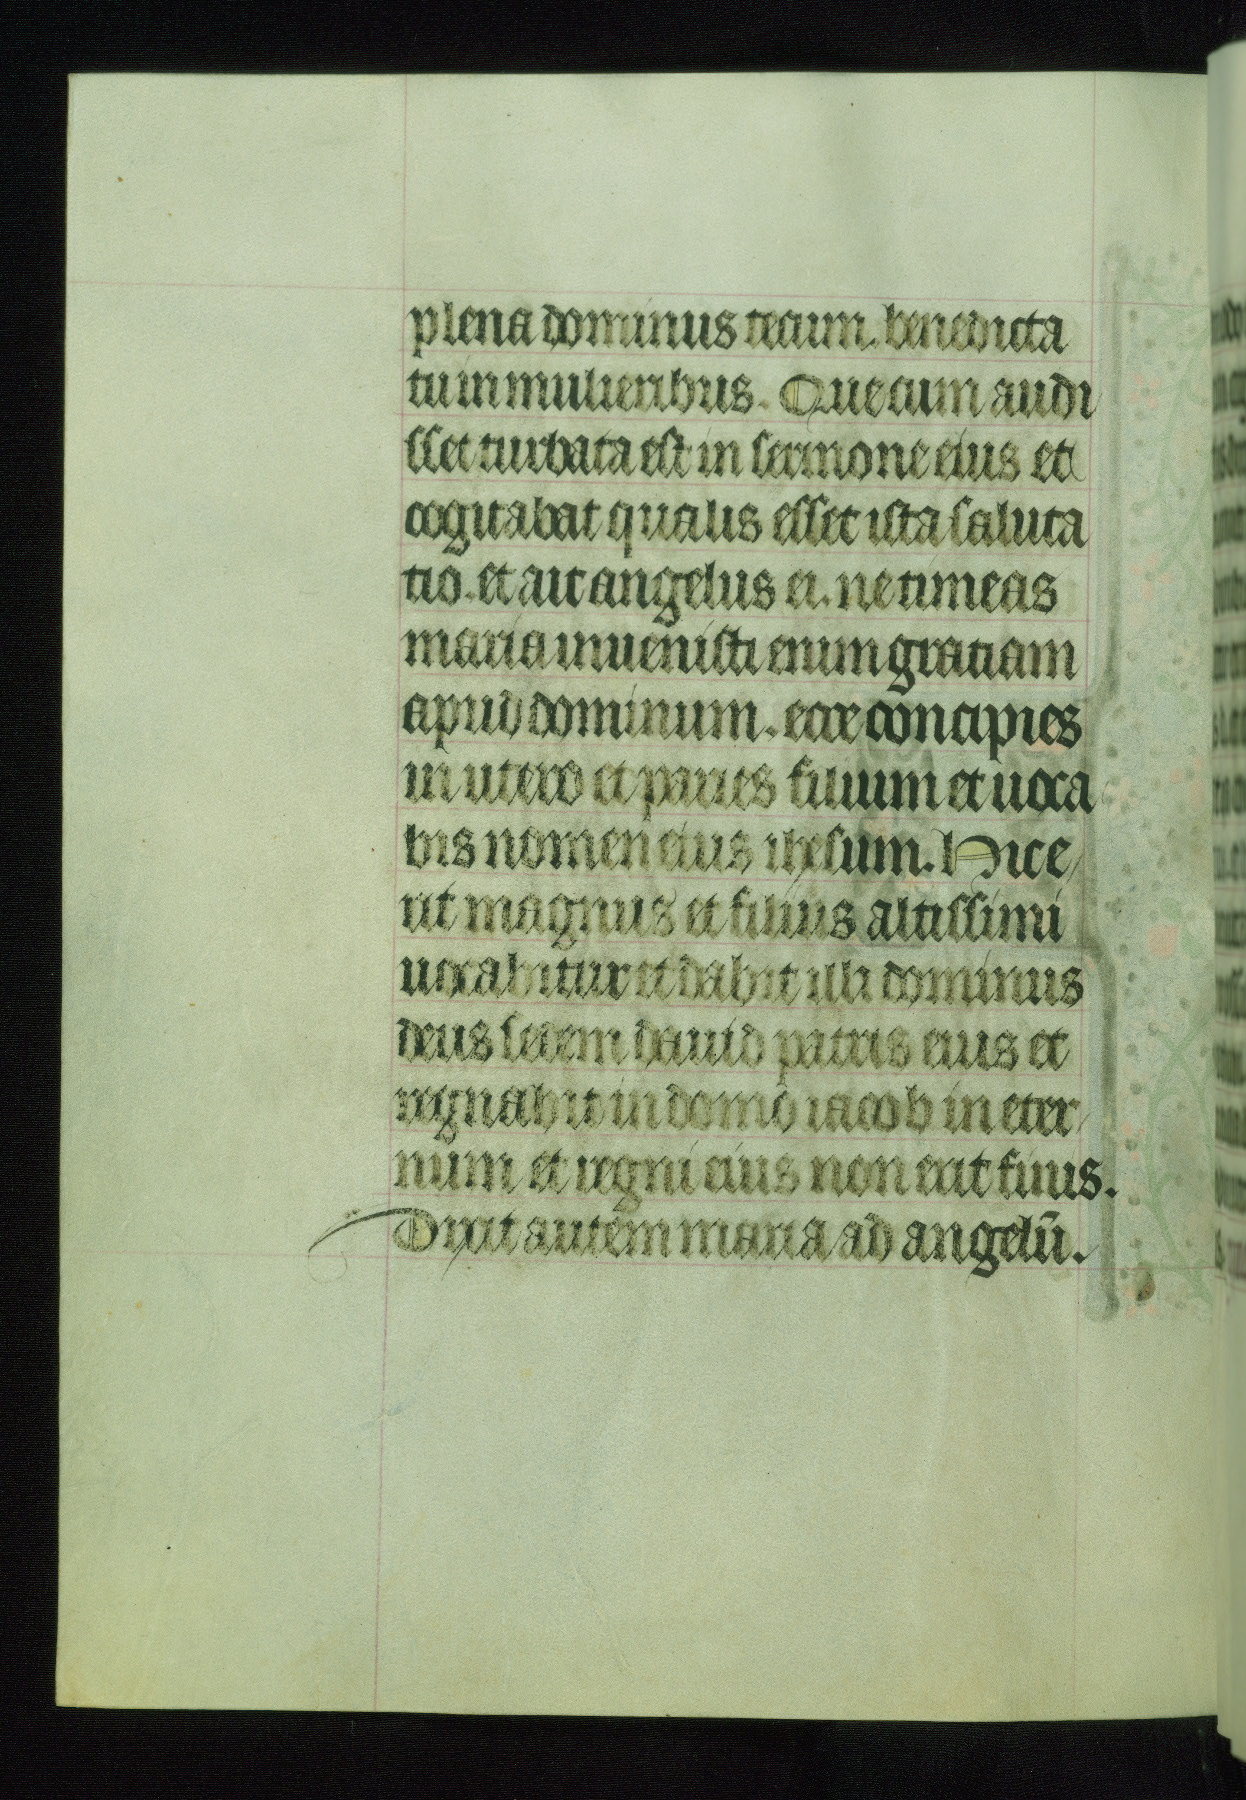 plena dominus tecum. benedicta
tu in mulieribus. Que cum audi
sset turbata est in sermone eius et
cogitabat qualis esset ista saluta
tio. et ait angelus ei. ne timeas
maria inuenisti enim gratiam
apud dominum. ecce concipies
in utero et paries filium et uoca
bis nomen eius ihesum. Hic e
rit magnus et filius altissimi
uocabitur et dabit illi dominus
deus sedem dauid patris eius et
regnabit in domo iacob in eter
num et regni eius non erit finis.
Dixit autem maria ad angelū.